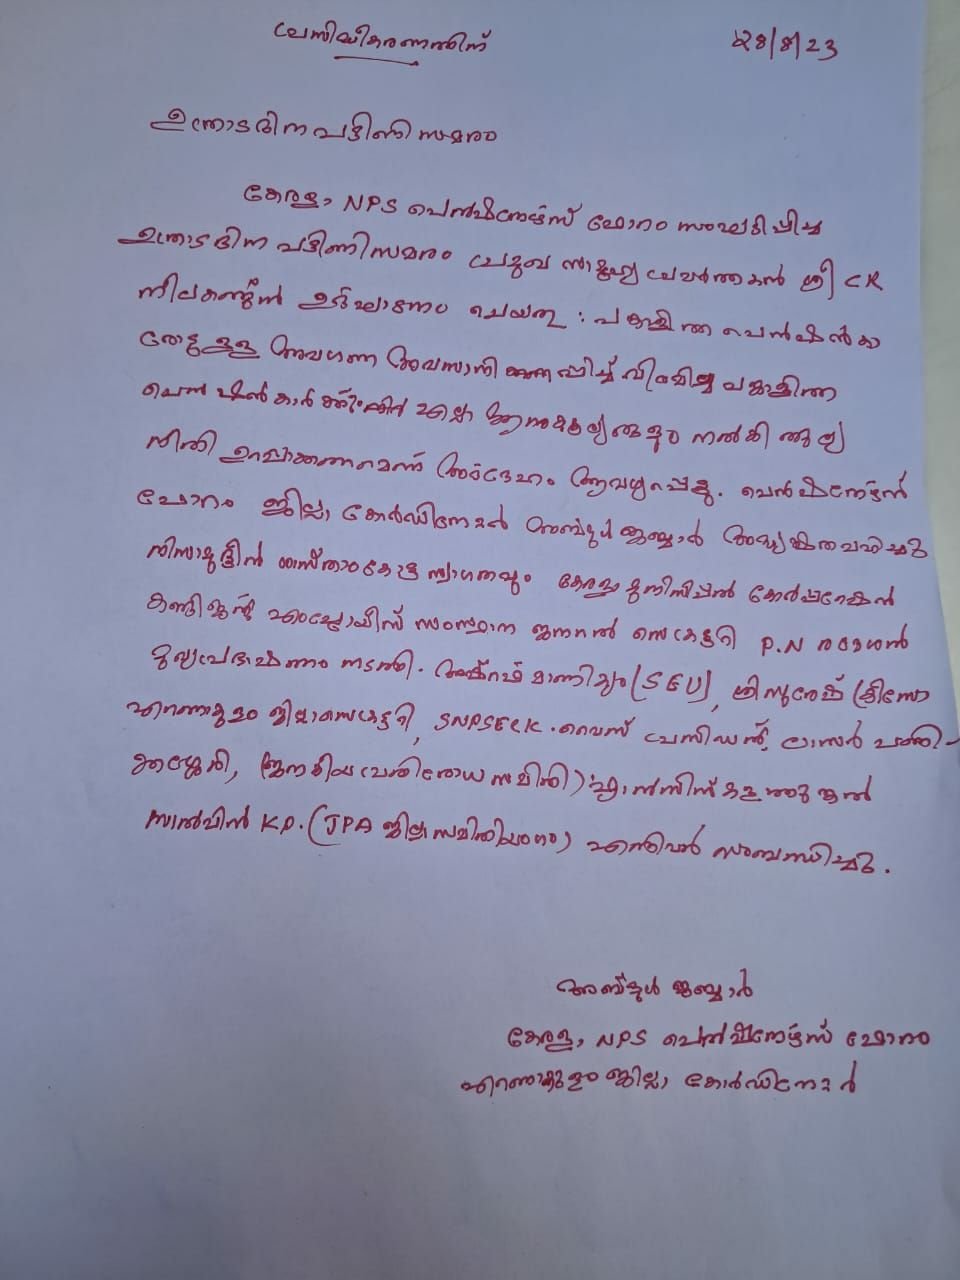 പ്രസിദ്ധീകരണത്തിന് 28/8/23
ഉത്രാടദിന പട്ടിണി സമരം
കേരള NPS പെൻഷനേഴ്സ് ഫോറം സംഘടിപ്പിച്ച
ഉത്രാടദിന പട്ടിണിസമരം പ്രമുഖ സാമൂഹ്യ പ്രവർത്തകൻ ശ്രീ CR
നീലകണ്ഠൻ ഉദ്ഘാടനം ചെയ്തു : പങ്കാളിത്ത പെൻഷൻകാ
രോടുള്ള അവഗണന അവസാനിപ്പിച്ച് വിരമിച്ച പങ്കാളിത്ത
പെൻഷൻകാർക്ക് എല്ലാ ആനുകൂല്യങ്ങളും നൽകി തുല്യ
നീതി ഉറപ്പാക്കണമെന്ന് അദ്ദേഹം ആവശ്യപ്പെട്ടു. പെൻഷനേഴ്സ്
ഫോറം ജില്ലാ കോർഡിനേറ്റർ അബ്ദുൾ ജബ്ബാർ അദ്ധ്യക്ഷത വഹിച്ചു
നിസാമുദ്ദീൻ ശാസ്താംകോട്ട സ്വാഗതവും കേരള മുനിസിപ്പൽ കോർപ്പറേഷൻ
കണ്ടിജന്റ് എംപ്ലോയീസ് സംസ്ഥാന ജനറൽ സെക്രട്ടറി P.N
മുഖ്യപ്രഭാഷണം നടത്തി. അഷ്റഫ് മാണിക്യം (SEU), ശ്രീ സുരേഷ്
എറണാകുളം ജില്ലാ സെക്രട്ടറി, SNPSECK. വൈസ് പ്രസിഡന്റ്,
ജനകീയ പ്രതിരോധ സമിതി) ഫ്രാൻസിസ് കളത്തുങ്കൽ
സാൽവിൻ K.P. (JPA ജില്ലാ സമിതിയംഗം) എന്നിവർ സംബന്ധിച്ചു.
അബ്ദുൾ ജബ്ബാർ
കേരള NPS പെൻഷനേഴ്സ് ഫോറം
എറണാകുളം ജില്ലാ കോർഡിനേറ്റർ